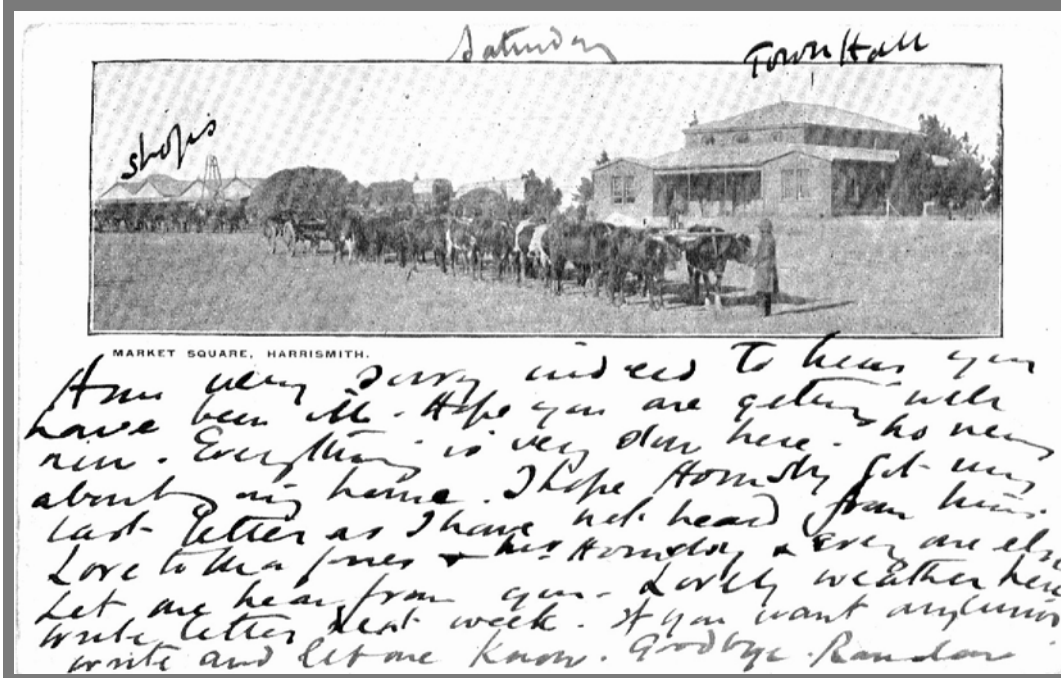 Saturday
Town Hall
shops
MARKET SQUARE, HARRISMITH.
Am very sorry indeed to hear you
have been ill. Hope you are getting well
now. Everything is very slow here. No news
about going home. I hope Hornsby got my
last letter as I have not heard from him.
Love to the & Mrs Hornsby & every one else
Let me hear from you. Lovely weather here
write letter next week. If you want anything
write and let me know. Goodbye.